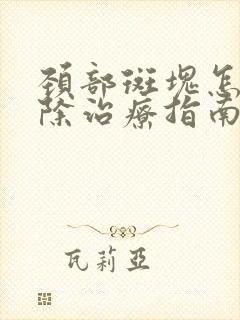 頸部斑塊怎
除治療指南
瓦莉亞